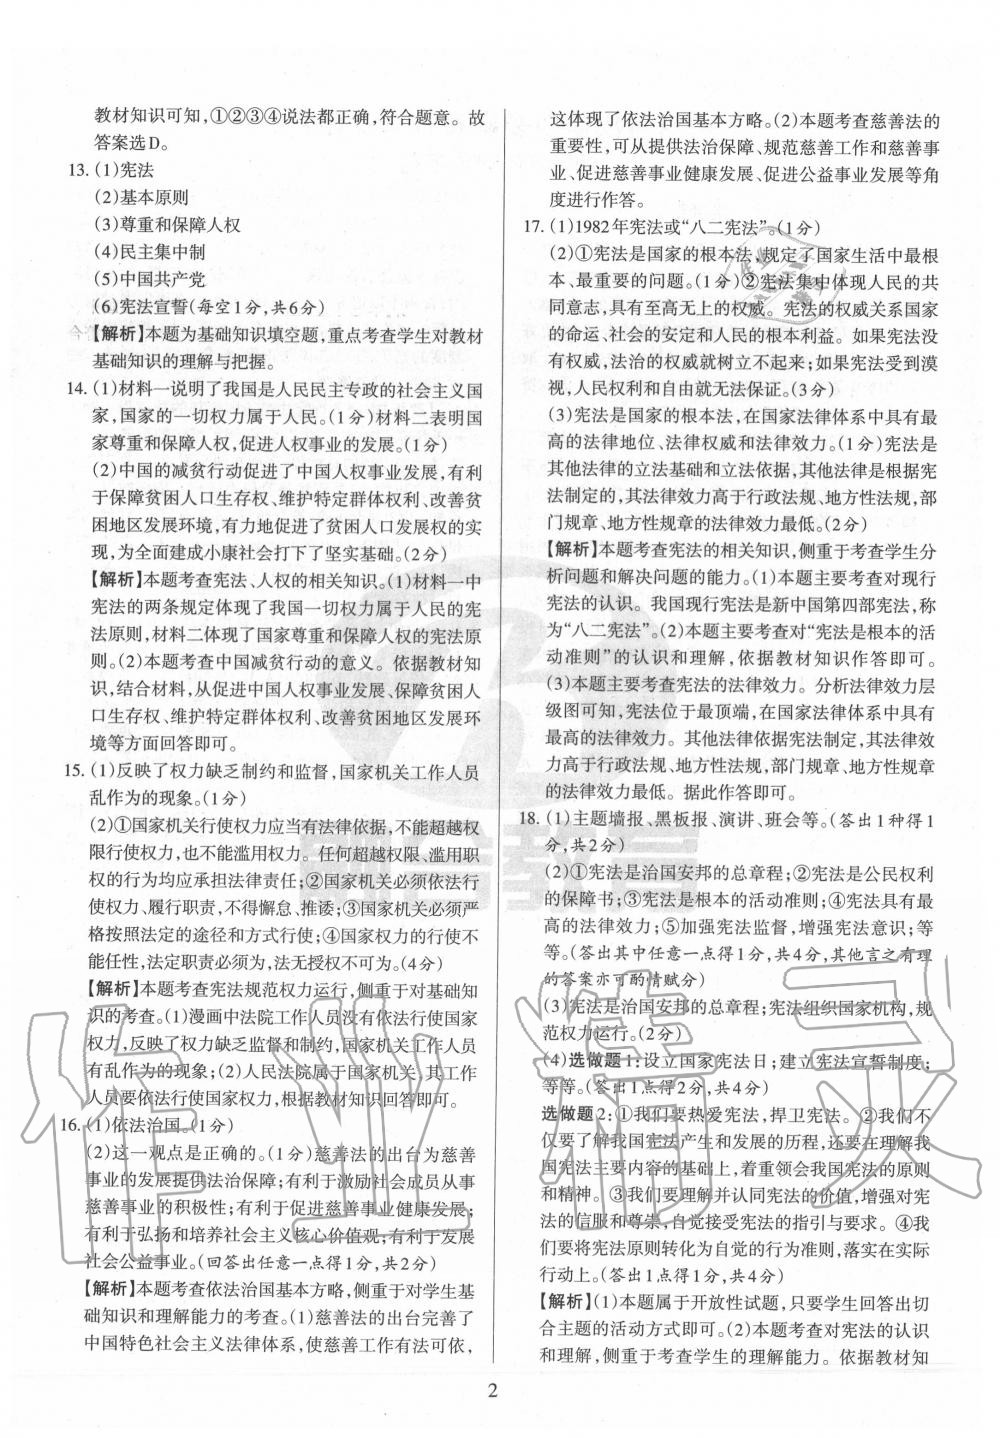 教材知识可知，①②③④说法都正确，符合题意。故
答案选D。
13. (1)宪法
(2)基本原则
(3)尊重和保障人权
(4)民主集中制
(5)中国共产党
(6)宪法宣誓(每空1分，共6分)
【解析】本题为基础知识填空题，重点考查学生对教材
基础知识的理解与把握。
14. (1)材料一说明了我国是人民民主专政的社会主义国
家，国家的一切权力属于人民。(1分)材料二表明国
家尊重和保障人权，促进人权事业的发展。(1分)
(2)中国的减贫行动促进了中国人权事业发展，有利
于保障贫困人口生存权、维护特定群体权利、改善贫
困地区发展环境，有力地促进了贫困人口发展权的实
现，为全面建成小康社会打下了坚实基础。(2分)
【解析】本题考查宪法、人权的相关知识。(1)材料一中
宪法的两条规定体现了我国一切权力属于人民的宪
法原则，材料二体现了国家尊重和保障人权的宪法原
则。(2)本题考查中国减贫行动的意义。依据教材知
识，结合材料，从促进中国人权事业发展、保障贫困人
口生存权、维护特定群体权利、改善贫困地区发展环
境等方面回答即可。
15. (1)反映了权力缺乏制约和监督，国家机关工作人员
乱作为的现象。(1分)
(2)①国家机关行使权力应当有法律依据，不能超越权
限行使权力，也不能滥用权力。任何超越权限、滥用职
权的行为均应承担法律责任；②国家机关必须依法行使
权力、履行职责，不得懈怠、推诿；③国家机关必须严
格按照法定的途径和方式行使；④国家权力的行使不
能任性，法定职责必须为，法无授权不可为。(4分)
【解析】本题考查宪法规范权力运行，侧重于对基础知
识的考查。(1)漫画中法院工作人员没有依法行使国家
权力，反映了权力缺乏监督和制约，国家机关工作人员
有乱作为的现象；(2)人民法院属于国家机关，其工作
人员要依法行使国家权力，根据教材知识回答即可。
16. (1)依法治国。(1分)
(2)这一观点是正确的。(1分)慈善法的出台为慈善
事业的发展提供法治保障；有利于激励社会成员从事
慈善事业的积极性；有利于促进慈善事业健康发展；
有利于弘扬和培养社会主义核心价值观；有利于发展
社会公益事业。(回答出任意一点得1分，共2分)
【解析】本题考查依法治国基本方略，侧重于对学生基
础知识和理解能力的考查。(1)慈善法的出台完善了
中国特色社会主义法律体系，使慈善工作有法可依，
这体现了依法治国基本方略。(2)本题考查慈善法的
重要性，可从提供法治保障、规范慈善工作和慈善事
业、促进慈善事业健康发展、促进公益事业发展等角
度进行作答。
17. (1)1982年宪法或“八二宪法”。(1分)
(2)①宪法是国家的根本法，规定了国家生活中最根
本、最重要的问题。(1分)②宪法集中体现人民的共
同意志，具有至高无上的权威。宪法的权威关系国家
的命运、社会的安定和人民的根本利益。如果宪法没
有权威，法治的权威就树立不起来；如果宪法受到漠
视，人民权利和自由就无法保证。(3分)
(3)宪法是国家的根本法，在国家法律体系中具有最
高的法律地位、法律权威和法律效力。(1分)宪法是
其他法律的立法基础和立法依据，其他法律是根据宪
法制定的，其法律效力高于行政法规、地方性法规，部
门规章、地方性规章的法律效力最低。(2分)
【解析】本题考查宪法的相关知识，侧重于考查学生分
析问题和解决问题的能力。(1)本题主要考查对现行
宪法的认识。我国现行宪法是新中国第四部宪法，称
为“八二宪法”。(2)本题主要考查对“宪法是根本的活
动准则”的认识和理解，依据教材知识作答即可。
(3)本题主要考查宪法的法律效力。分析法律效力层
级图可知，宪法位于最顶端，在国家法律体系中具有
最高的法律效力。其他法律依据宪法制定，其法律效
力高于行政法规、地方性法规，部门规章、地方性规章
的法律效力最低。据此作答即可。
18. (1)主题墙报、黑板报、演讲、班会等。(答出1种得1
分，共2分)
(2)①宪法是治国安邦的总章程；②宪法是公民权利
的保障书；③宪法是根本的活动准则；④宪法具有最
高的法律效力；⑤加强宪法监督，增强宪法意识；等
等。(答出其中任意一点得1分，共4分，其他言之有理
的答案亦可酌情赋分)
(3)宪法是治国安邦的总章程；宪法组织国家机构，规
范权力运行。(2分)
(4)选做题1：设立国家宪法日；建立宪法宣誓制度；
等等。(答出1点得2分，共4分)
选做题2：①我们要热爱宪法，捍卫宪法。②我们不
仅要了解我国宪法产生和发展的历程，还要在理解我
国宪法主要内容的基础上，着重领会我国宪法的原则
和精神。③我们要理解并认同宪法的价值，增强对宪
法的信服和尊崇，自觉接受宪法的指引与要求。④我
们要将宪法原则转化为自觉的行为准则，落实在实际
行动上。(答出1点得1分，共4分)
【解析】(1)本题属于开放性试题，只要学生回答出切
合主题的活动方式即可。(2)本题考查对宪法的认识
和理解，侧重于考查学生的理解能力。依据教材知
2
作业精灵